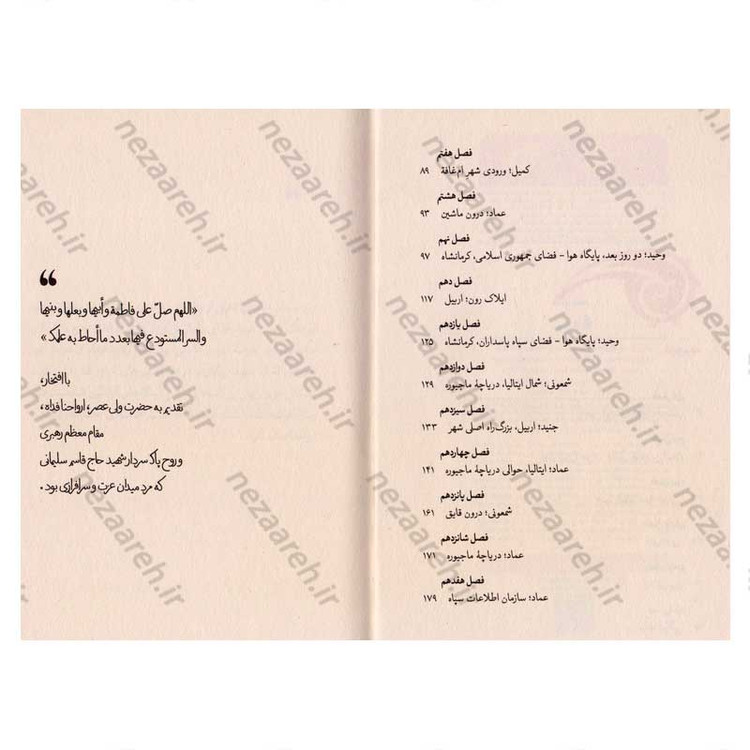 فصل هفتم
کمیل؛ ورودی شهر ام‌غافة ۸۹
فصل هشتم
عماد؛ درون ماشین ۹۳
فصل نهم
وحید؛ دو روز بعد، پایگاه هوا - فضای جمهوری اسلامی، کرمانشاه ۹۷
فصل دهم
ایلاک رون؛ اربیل ۱۱۷
فصل یازدهم
وحید؛ پایگاه هوا - فضای سپاه پاسداران، کرمانشاه ۱۲۵
فصل دوازدهم
شمعونی؛ شمال ایتالیا، دریاچهٔ ماجیوره ۱۲۹
فصل سیزدهم
جنید؛ اربیل، بزرگ‌راه اصلی شهر ۱۳۳
فصل چهاردهم
عماد؛ ایتالیا، حوالی دریاچهٔ ماجیوره ۱۴۱
فصل پانزدهم
شمعونی؛ درون قایق ۱۶۱
فصل شانزدهم
عماد؛ دریاچهٔ ماجیوره ۱۷۱
فصل هفدهم
عماد؛ سازمان اطلاعات سپاه ۱۷۹
«اللهم صلّ علی فاطمة و أبیها و بعلها و بنیها
والسر المستودع فیها بعدد ما أحاط به علمک»
با افتخار،
تقدیم به حضرت ولی عصر، ارواحنا فداه،
مقام معظم رهبری
و روح پاک سردار شهید حاج قاسم سلیمانی
که مردِ میدان عزت و سرافرازی بود.
nezaareh.ir